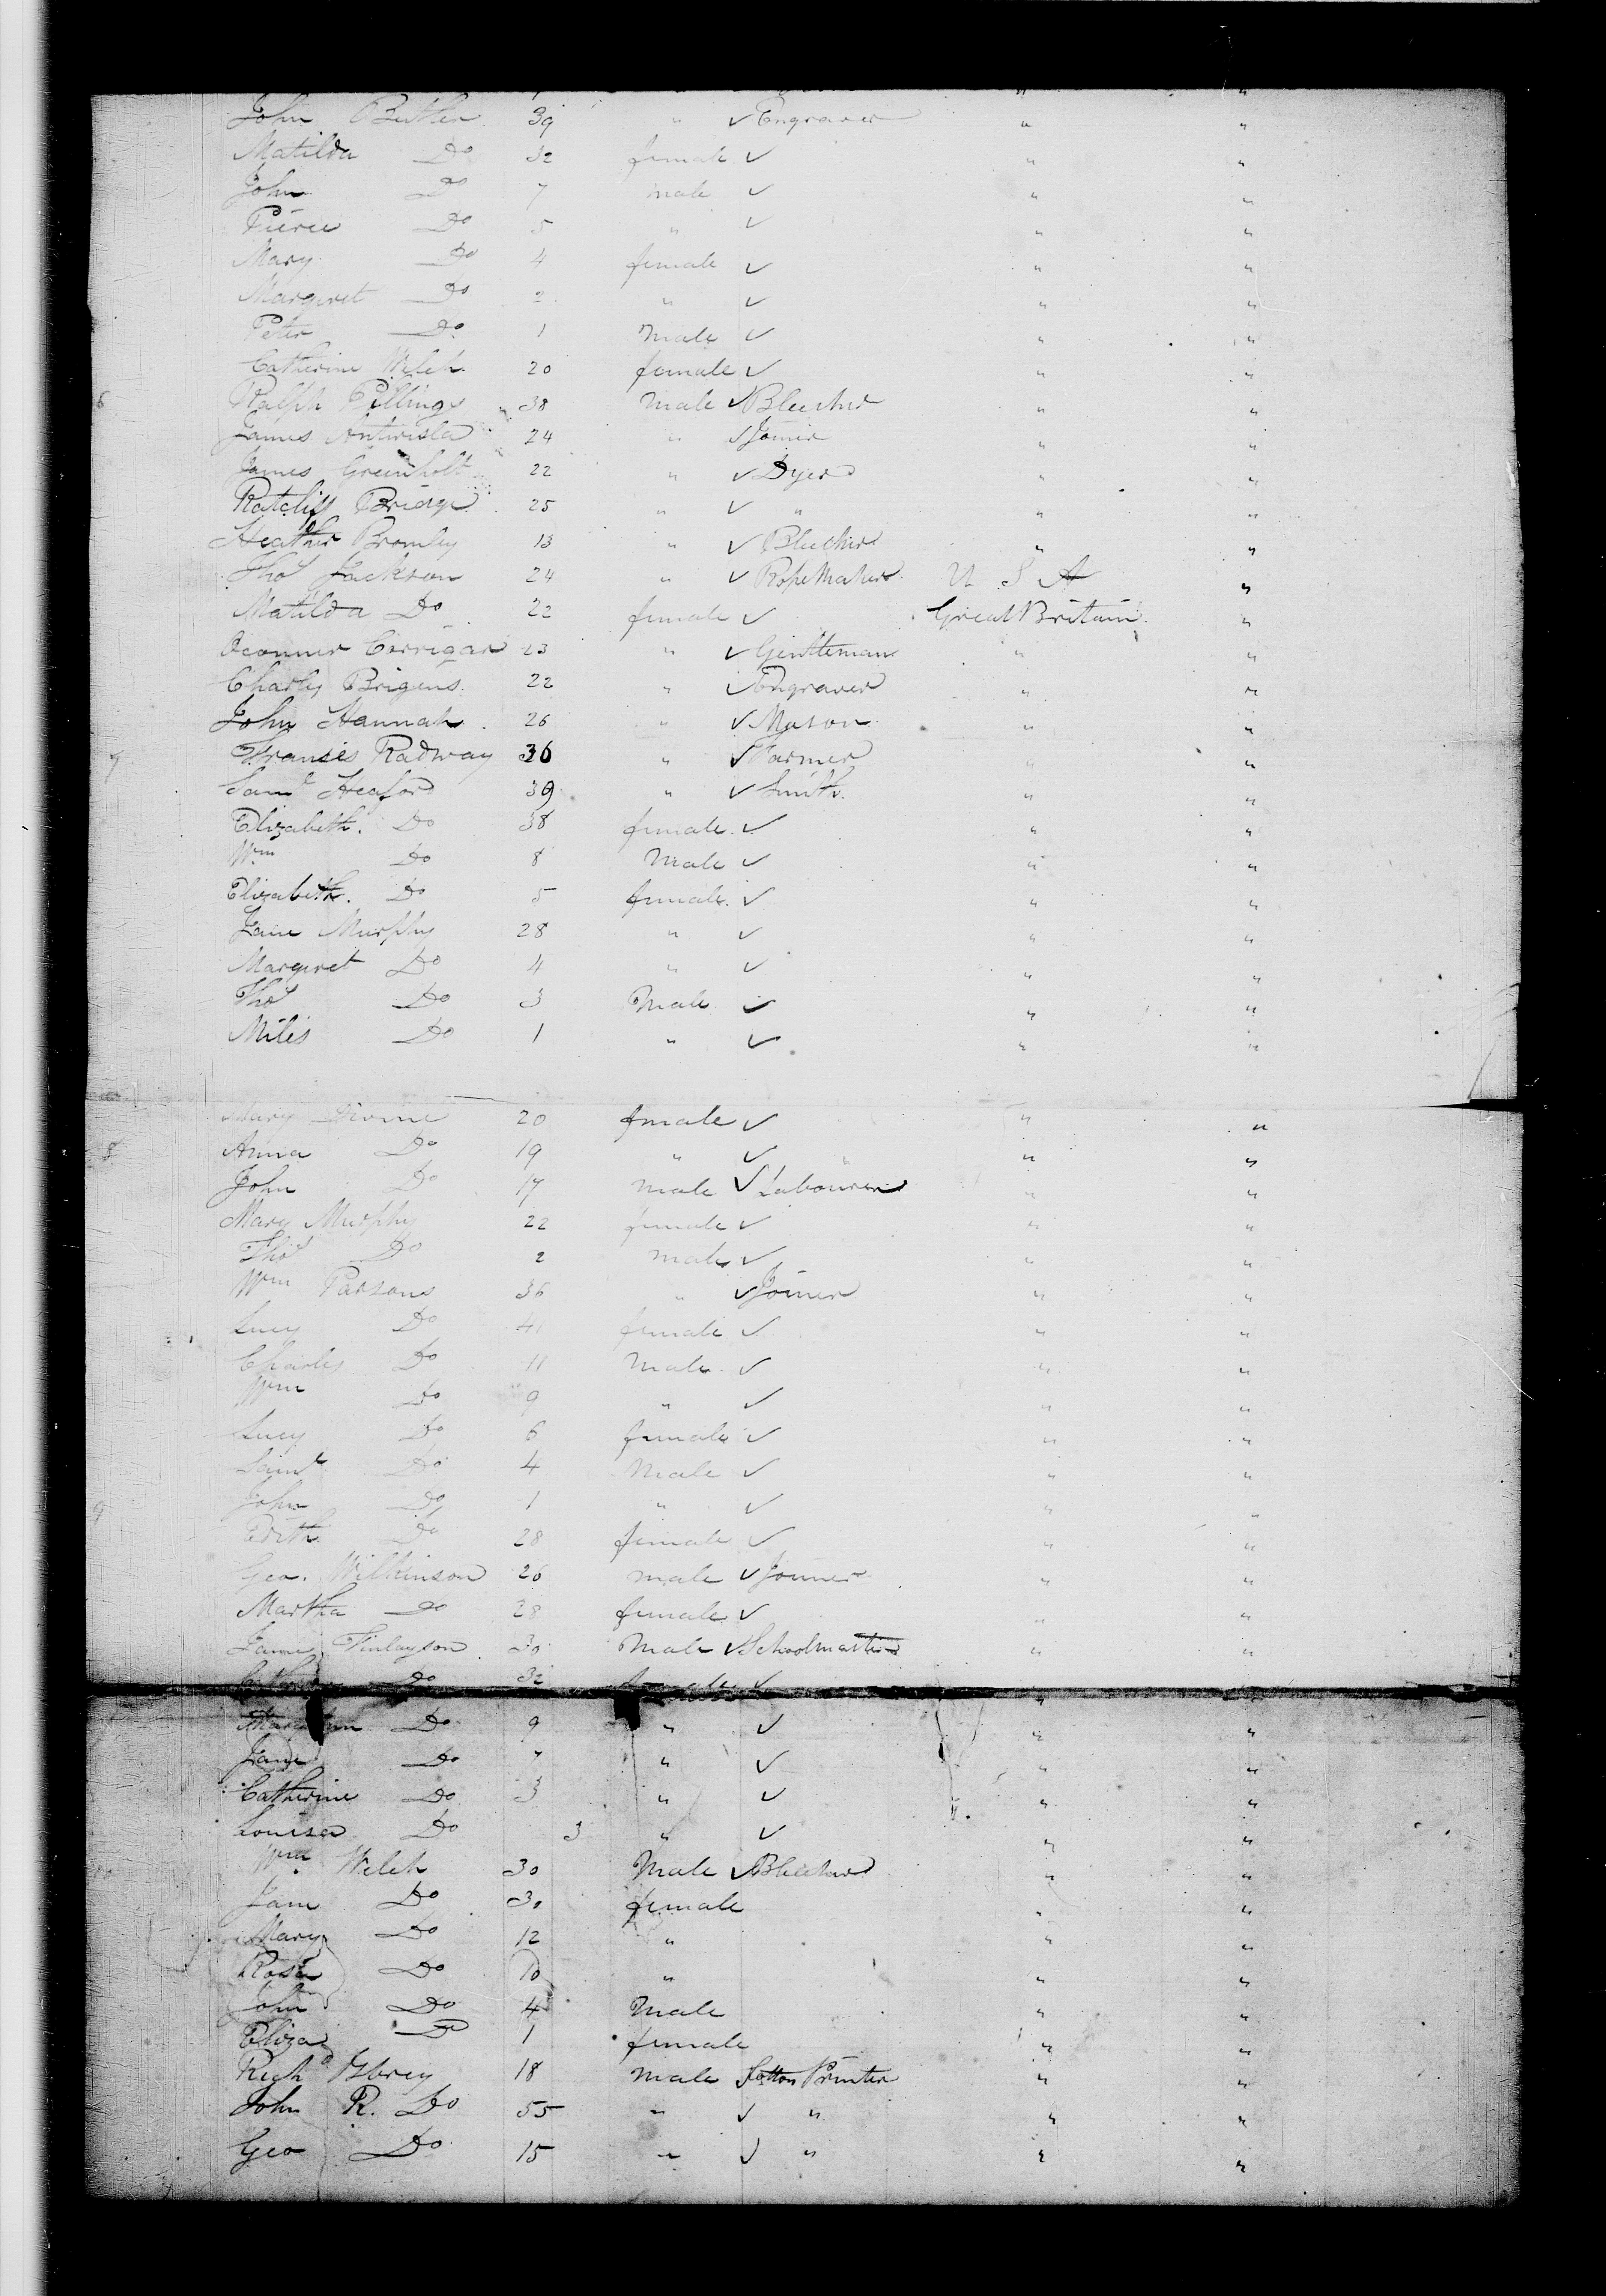 John Butler 39 " ✓ Engraver " "
Matilda Do 32 female ✓ " "
John Do 7 male ✓ " "
Pierce Do 5 " ✓ " "
Mary Do 4 female ✓ " "
Margaret Do 2 " ✓ " "
Peter Do 1 Male ✓ " "
Catherine Welch 20 female ✓ " "
6 Ralph Pillings 38 Male ✓ Bleecher " "
James Antwisla 24 " ✓ Joiner " "
James Greenhelt 22 " ✓ Dyer " "
Ratcliff Bridge 25 " ✓ " " "
Heather Bromley 13 " ✓ Bleecher " "
Thos Jackson 24 " ✓ Rope Maker U S A "
Matilda Do 22 female ✓ Great Britain "
Oconner Corrigan 23 " ✓ Gentleman " "
Charles Brigens 22 " ✓ Engraver " "
John Hannah 26 " ✓ Mason " "
7 Francis Radway 36 " ✓ Farmer " "
Saml Heaford 39 " ✓ Smith " "
Elizabeth Do 38 female ✓ " "
Wm Do 8 Male ✓ " "
Elizabeth Do 5 female ✓ " "
Jane Murphy 28 " ✓ " "
Margaret Do 4 " ✓ " "
Thos Do 3 Male ✓ " "
Miles Do 1 " ✓ " "
Mary Divine 20 fmale ✓ " "
8 Anna Do 19 " ✓ " " "
John Do 17 male ✓ Labourer " "
Mary Murphy 22 female ✓ " "
Thos Do 2 male ✓ " "
Wm Parsons 36 " ✓ Joiner " "
Lucy Do female ✓ " "
Charles Do 11 Male ✓ " "
Wm Do 9 " ✓ " "
Lucy Do 6 female ✓ " "
Saml Do 4 Male ✓ " "
9 John Do 1 " ✓ " "
Edith Do 28 female ✓ " "
Geo. Wilkinson 26 male ✓ Joiner " "
Martha Do 28 female ✓ " "
James Finlayson 30 Male ✓ Schoolmaster " "
Do 32 female ✓ " "
Do 9 " ✓ " "
Jane Do 7 " ✓ " "
Catherine Do 3 " ✓ " "
Louisa Do 3 " ✓ " "
Wm Welch 30 Male ✓ Bleecher " "
Jane Do 30 female " "
Mary Do 12 " " "
Rosa Do 10 " " "
John Do 4 Male " "
Eliza Do 1 female " "
Richd 18 male Cotton Printer " "
John R. Do 55 " ✓ " " "
Geo Do 15 " ✓ " " "